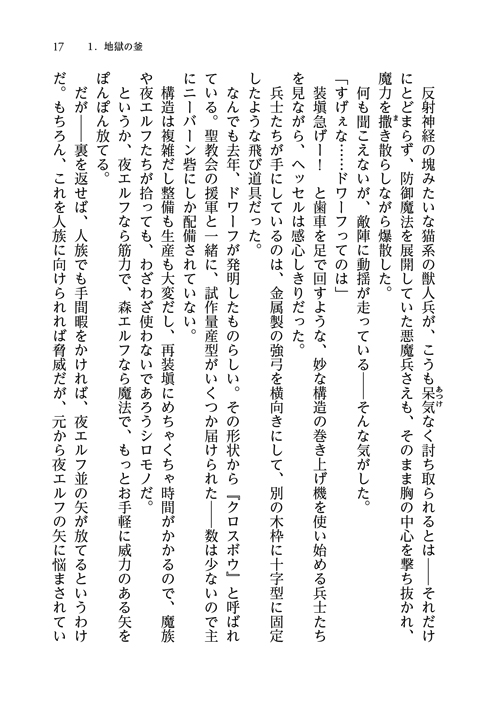 17　1．地獄の釜
　反射神経の塊みたいな猫系の獣人兵が、こうも呆気なく討ち取られるとは――それだけ
にとどまらず、防御魔法を展開していた悪魔兵さえも、そのまま胸の中心を撃ち抜かれ、
魔力を撒き散らしながら爆散した。
　何も聞こえないが、敵陣に動揺が走っている――そんな気がした。
「すげぇな……ドワーフってのは」
　装塡急げー！　と歯車を足で回すような、妙な構造の巻き上げ機を使い始める兵士たち
を見ながら、ヘッセルは感心しきりだった。
　兵士たちが手にしているのは、金属製の強弓を横向きにして、別の木枠に十字型に固定
したような飛び道具だった。
　なんでも去年、ドワーフが発明したものらしい。その形状から『クロスボウ』と呼ばれ
ている。聖教会の援軍と一緒に、試作量産型がいくつか届けられた――数は少ないので主
にニーバーン砦にしか配備されていない。
　構造は複雑だし整備も生産も大変だし、再装塡にめちゃくちゃ時間がかかるので、魔族
や夜エルフたちが拾っても、わざわざ使わないであろうシロモノだ。
　というか、夜エルフなら筋力で、森エルフなら魔法で、もっとお手軽に威力のある矢を
ぽんぽん放てる。
　だが――裏を返せば、人族でも手間暇をかければ、夜エルフ並の矢が放てるというわけ
だ。もちろん、これを人族に向けられれば脅威だが、元から夜エルフの矢に悩まされてい